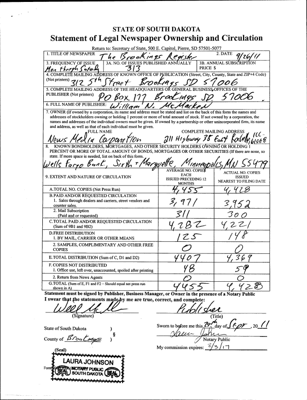 STATE OF SOUTH DAKOTA
Statement of Legal Newspaper Ownership and Circulation
Return to: Secretary of State, 500 E. Capitol, Pierre, SD 57501-5077
1. TITLE OF NEWSPAPER The Brookings Register 2. DATE 9/26/11
3. FREQUENCY OF ISSUE Mon through Saturday 3A. NO. OF ISSUES PUBLISHED ANNUALLY 313 3B. ANNUAL SUBSCRIPTION PRICE $
4. COMPLETE MAILING ADDRESS OF KNOWN OFFICE OF PUBLICATION (Street, City, County, State and ZIP+4 Code)
(Not printers) 312 5th Street Brookings SD 57006
5. COMPLETE MAILING ADDRESS OF THE HEADQUARTERS OF GENERAL BUSINESS OFFICES OF THE
PUBLISHER (Not printers) PO Box 177 Brookings SD 57006
6. FULL NAME OF PUBLISHER: William N. McMacken
7. OWNER (If owned by a corporation, its name and address must be stated and list on the back of this form the names and
addresses of stockholders owning or holding 1 percent or more of total amount of stock. If not owned by a corporation, the
names and addresses of the individual owners must be given. If owned by a partnership or other unincorporated firm, its name
and address, as well as that of each individual must be given.
FULL NAME COMPLETE MAILING ADDRESS
News Media Corporation 211 Highway 38 East Rochelle, Ill
8. KNOWN BONDHOLDERS, MORTGAGEES, AND OTHER SECURITY HOLDERS OWNING OR HOLDING 1
PERCENT OR MORE OF TOTAL AMOUNT OF BONDS, MORTGAGES OR OTHER SECURITIES (If there are none, so
state. If more space is needed, list on back of this form.
Wells Fargo Bank, Sixth + Marquette, Minneapolis, MN 55479
9. EXTENT AND NATURE OF CIRCULATION
AVERAGE NO. COPIES EACH ISSUED PRECEDING 12 MONTHS
ACTUAL NO. COPIES ISSUED NEAREST TO FILING DATE
A. TOTAL NO. COPIES (Net Press Run) 4,455 4,428
B. PAID AND/OR REQUESTED CIRCULATION
1. Sales through dealers and carriers, street vendors and counter sales. 3,971 3,952
2. Mail Subscription (Paid and or requested) 311 300
C. TOTAL PAID AND/OR REQUESTED CIRCULATION (Sum of 9B1 and 9B2) 4,282 4,221
D. FREE DISTRIBUTION
1. BY MAIL, CARRIER OR OTHER MEANS 125 148
2. SAMPLES, COMPLIMENTARY AND OTHER FREE COPIES 0 0
E. TOTAL DISTRIBUTION (Sum of C, D1 and D2) 4407 4,369
F. COPIES NOT DISTRIBUTED
1. Office use, left over, unaccounted, spoiled after printing 48 59
2. Return from News Agents 0 0
G. TOTAL (Sum of E, F1 and F2 - Should equal net press run shown in A) 4455 4,428
Statement must be signed by Publisher, Business Manager, or Owner in the presence of a Notary Public
I swear that the statements made by me are true, correct, and complete:
Publisher
(Signature) (Title)
State of South Dakota )
Sworn to before me this day of Sept, 2011
County of Brookings )
Notary Public
(Seal) My commission expires:
LAURA JOHNSON
NOTARY PUBLIC
SOUTH DAKOTA
SEAL